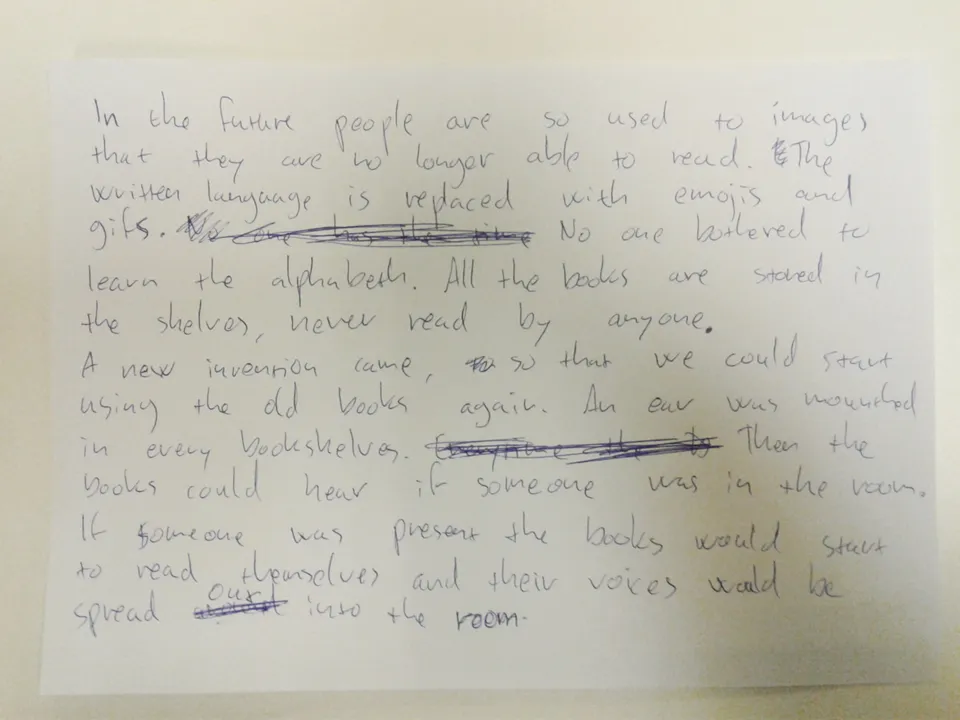 In the future people are so used to images
that they are no longer able to read. The
written language is replaced with emojis and
gifs. No one has the time No one bothered to
learn the alphabeth. All the books are stored in
the shelves, never read by anyone.
A new invention came, so that we could start
using the old books again. An ear was mounted
in every bookshelves. Everytime the Then the
books could hear if someone was in the room.
If someone was present the books would start
to read themselves and their voices would be
spread out into the room.